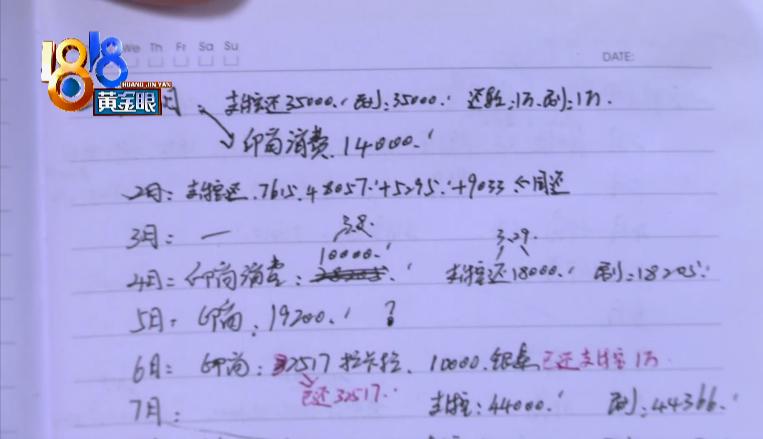 1818
HUANG JIN YAN
黄金眼
We Th Fr Sa Su
DATE:
月: 支付宝还35000. 刷:35000. 还款:1万.刷:1万.
印尚消费.14000.
2月: 支付宝还.7615.+8057.+5295.+9033
3月: —
3.8
10000.
3.29.
4月: 印尚消费: 支付宝还18000. 刷:18205.
5月. 印尚:19200. ?
6月: 印尚:32517拉卡拉. 10000.银 已还支付宝1万
已还32517.
7月: 支付宝:44000. 刷:44366.